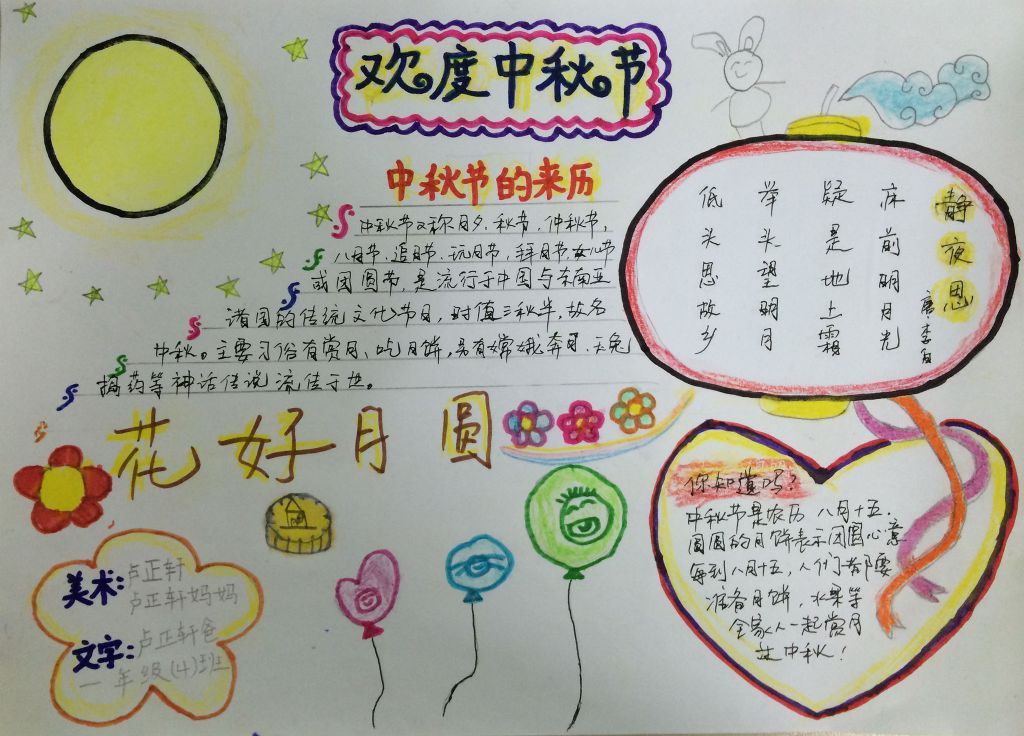 欢度中秋节
中秋节的来历
中秋节又称月夕、秋节、仲秋节，
八月节、追月节、玩月节、拜月节、女儿节
或团圆节，是流行于中国与东南亚
诸国的传统文化节日，时值三秋半，故名
中秋。主要习俗有赏月、吃月饼，另有嫦娥奔月、玉兔
捣药等神话传说流传于世。
静夜思
唐 李白
床前明月光
疑是地上霜
举头望明月
低头思故乡
花好月圆
你知道吗？
中秋节是农历八月十五.
圆圆的月饼表示团圆心意
每到八月十五，人们都要
准备月饼，水果等
全家人一起赏月
过中秋！
美术：卢正轩
卢正轩妈妈
文字：卢正轩爸
一年级(4)班